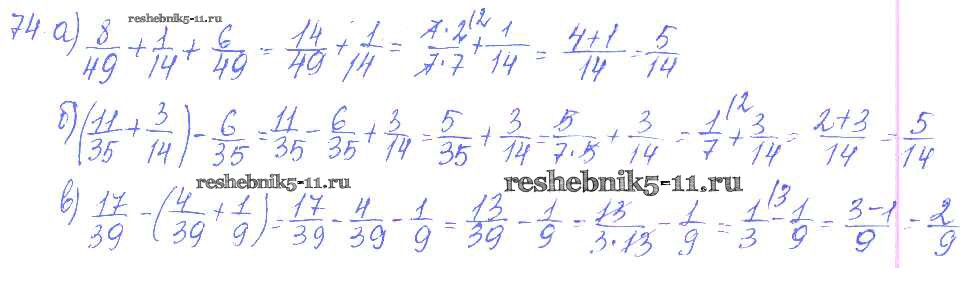 reshebnik5-11.ru
74. а) 8/49 + 1/14 + 6/49 = 14/49 + 1/14 = 7·2/7·7 \2 + 1/14 = 4+1/14 = 5/14
б) (11/35 + 3/14) - 6/35 = 11/35 - 6/35 + 3/14 = 5/35 + 3/14 = 5/7·5 + 3/14 = 1/7 \2 + 3/14 = 2+3/14 = 5/14
reshebnik5-11.ru reshebnik5-11.ru
в) 17/39 - (4/39 + 1/9) = 17/39 - 4/39 - 1/9 = 13/39 - 1/9 = 13/3·13 - 1/9 = 1/3 \3 - 1/9 = 3-1/9 = 2/9